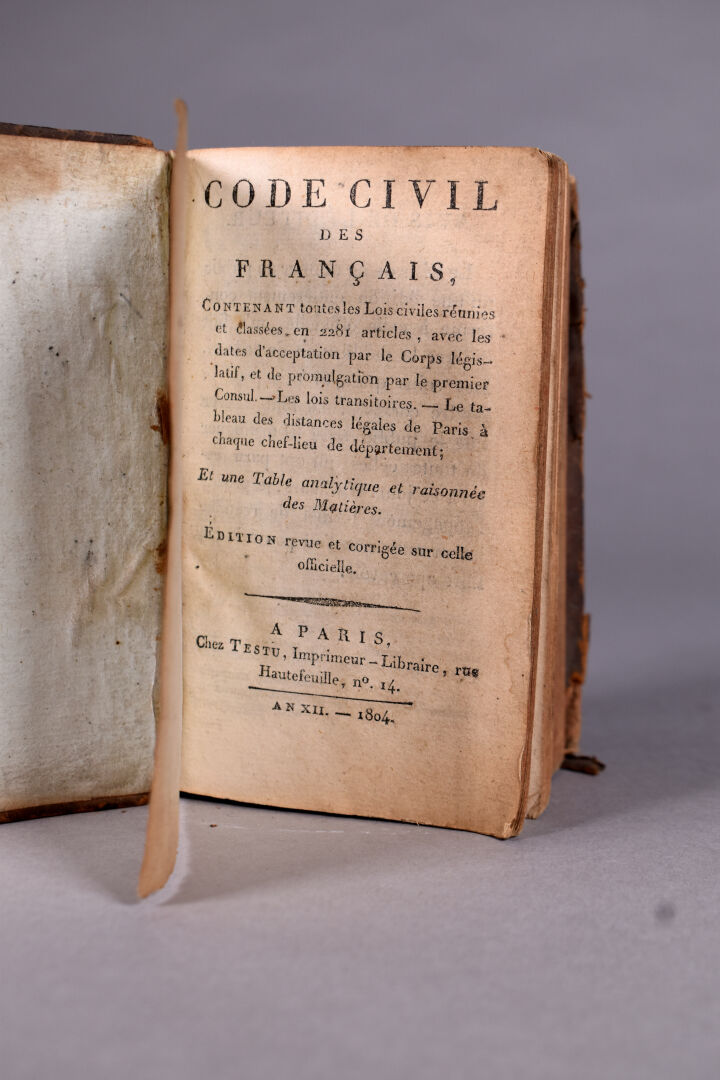 CODE CIVIL
DES
FRANÇAIS,
CONTENANT toutes les Lois civiles réunies
et classées en 2281 articles, avec les
dates d'acceptation par le Corps légis-
latif, et de promulgation par le premier
Consul. — Les lois transitoires. — Le ta-
bleau des distances légales de Paris à
chaque chef-lieu de département;
Et une Table analytique et raisonnée
des Matières.
ÉDITION revue et corrigée sur celle
officielle.
A PARIS,
Chez TESTU, Imprimeur-Libraire, rue
Hautefeuille, nº. 14.
AN XII. — 1804.